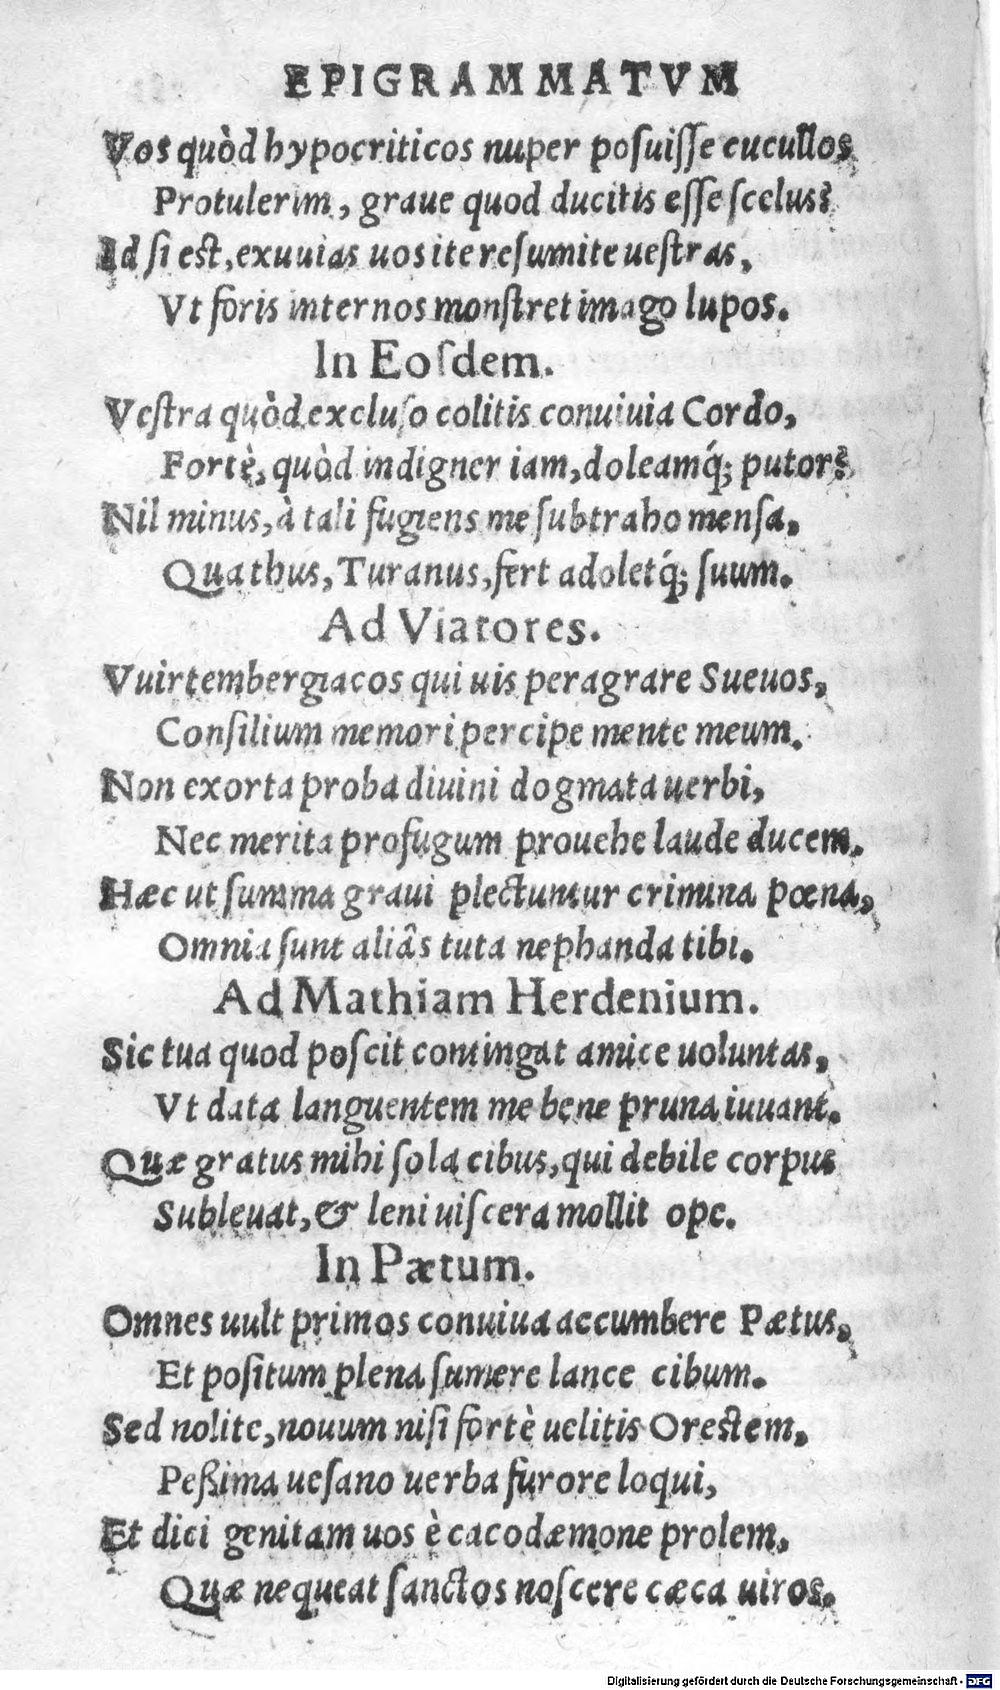 EPIGRAMMATVM
Vos quòd hypocriticos nuper posuisse cucullos
Protulerim, graue quod ducitis esse scelus?
Id si est, exuuias uos ite resumite uestras,
Vt foris internos monstret imago lupos.
In Eosdem.
Vestra quòd excluso colitis conuiuia Cordo,
Fortè, quòd indigner iam, doleamq́; putor?
Nil minus, à tali fugiens me subtraho mensa,
Qua thus, Turanus, fert adoletq́; suum.
Ad Viatores.
Vuirtembergiacos qui uis peragrare Sueuos,
Consilium memori percipe mente meum.
Non exorta proba diuini dogmata uerbi,
Nec merita profugum prouehe laude ducem.
Hæc ut summa graui plectuntur crimina pœna,
Omnia sunt aliâs tuta nephanda tibi.
Ad Mathiam Herdenium.
Sic tua quod poscit contingat amice uoluntas,
Vt data languentem me bene pruna iuuant.
Quæ gratus mihi sola cibus, qui debile corpus
Subleuat, & leni uiscera mollit ope.
In Pætum.
Omnes uult primos conuiua accumbere Pætus,
Et positum plena sumere lance cibum.
Sed nolite, nouum nisi fortè uelitis Orestem,
Peßima uesano uerba furore loqui,
Et dici genitam uos è cacodæmone prolem,
Quæ nequeat sanctos noscere cæca uiros.
Digitalisierung gefördert durch die Deutsche Forschungsgemeinschaft - DFG